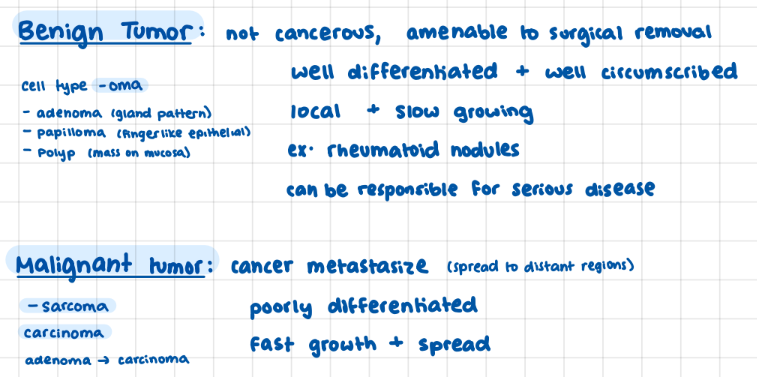 Benign Tumor: not cancerous, amenable to surgical removal
well differentiated + well circumscribed
cell type -oma
- adenoma (gland pattern)
- papilloma (fingerlike epithelial)
- polyp (mass on mucosa)
local + slow growing
ex. rheumatoid nodules
can be responsible for serious disease
Malignant tumor: cancer metastasize (spread to distant regions)
- sarcoma
carcinoma
adenoma → carcinoma
poorly differentiated
fast growth + spread